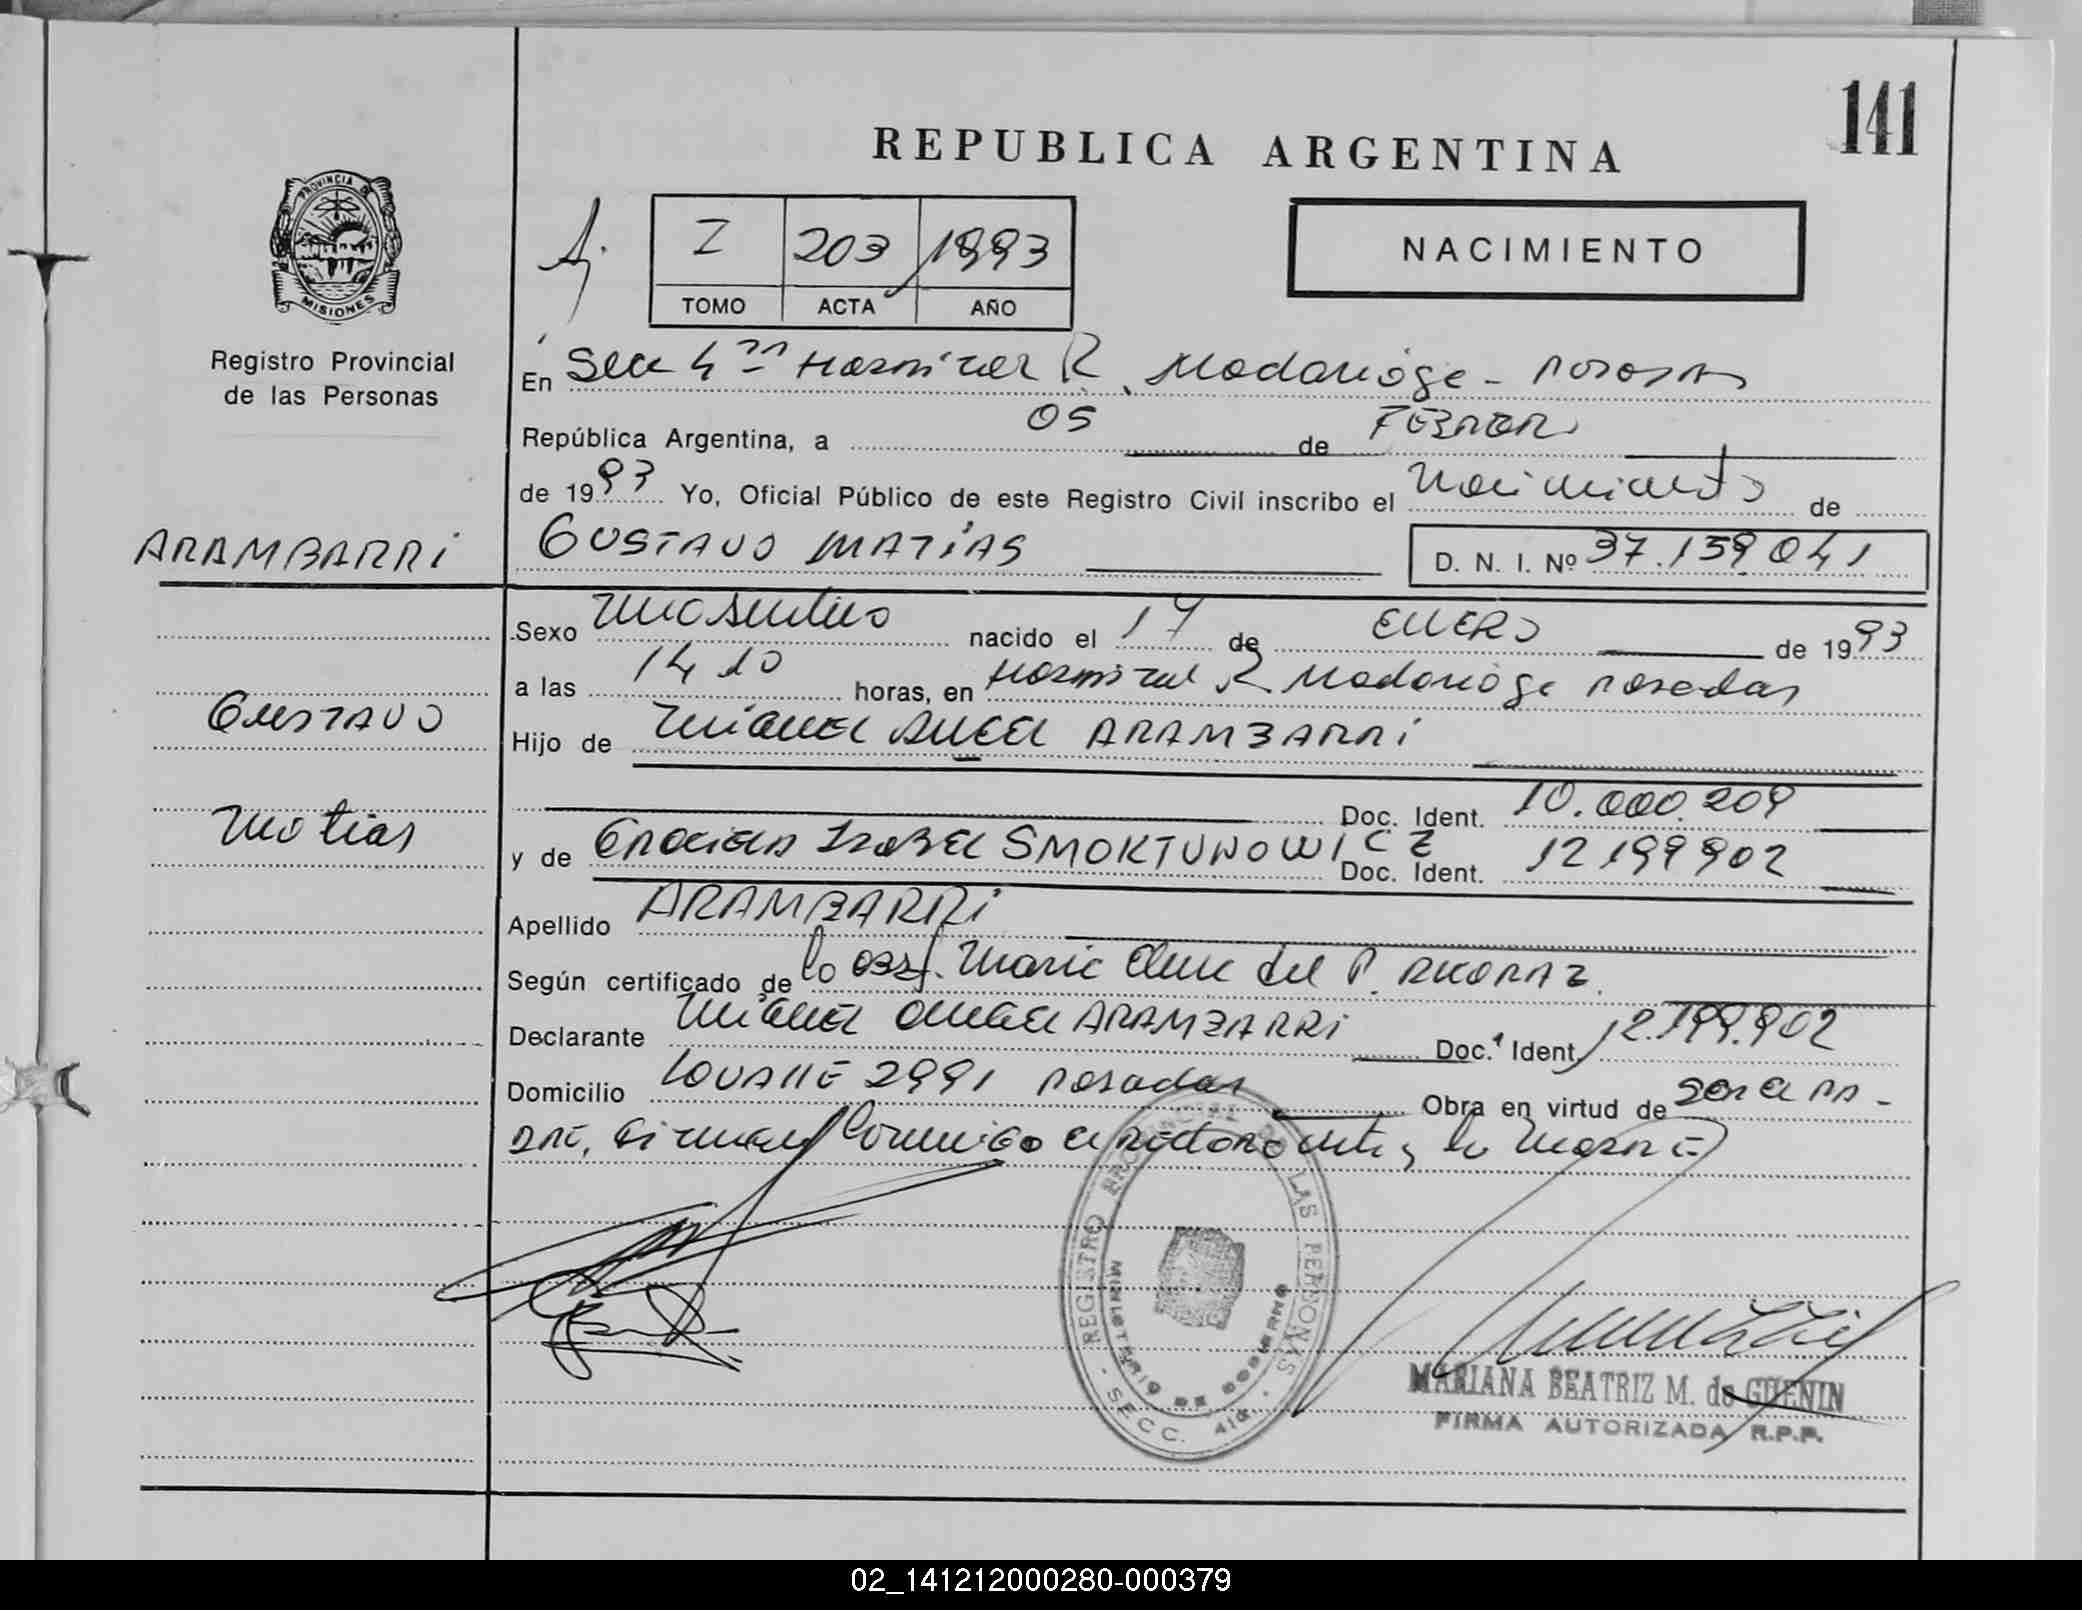 141
REPUBLICA ARGENTINA
PROVINCIA DE
MISIONES
Registro Provincial
de las Personas
I 203 1993
TOMO ACTA AÑO
NACIMIENTO
En Secc 4ta Hospital R. Madariaga - Posadas
República Argentina, a 05 de FEBRERO
de 1993 Yo, Oficial Público de este Registro Civil inscribo el Nacimiento de
ARAMBARRI
GUSTAVO MATÍAS D. N. I. Nº 37.159.041
Sexo Masculino nacido el 17 de ENERO de 1993
a las 14 10 horas, en Hospital R. Madariaga Posadas
GUSTAVO
Hijo de MIGUEL ANGEL ARAMBARRI
Doc. Ident. 10.000.209
Matias
y de GRACIELA ISABEL SMOKTUNOWICZ Doc. Ident. 12 199 902
Apellido ARAMBARRI
Según certificado de la obst. Maria del P.
Declarante MIGUEL ANGEL ARAMBARRI Doc. Ident. 12.199.902
Domicilio LAVALLE 2991 Posadas Obra en virtud de ser el PA-
DRE, firman conmigo el declarante y la MADRE
REGISTRO PROVINCIAL DE LAS PERSONAS
MINISTERIO DE GOBIERNO
SECC. 4ta.
MARIANA BEATRIZ M. de GUENIN
FIRMA AUTORIZADA R.P.P.
02_141212000280-000379